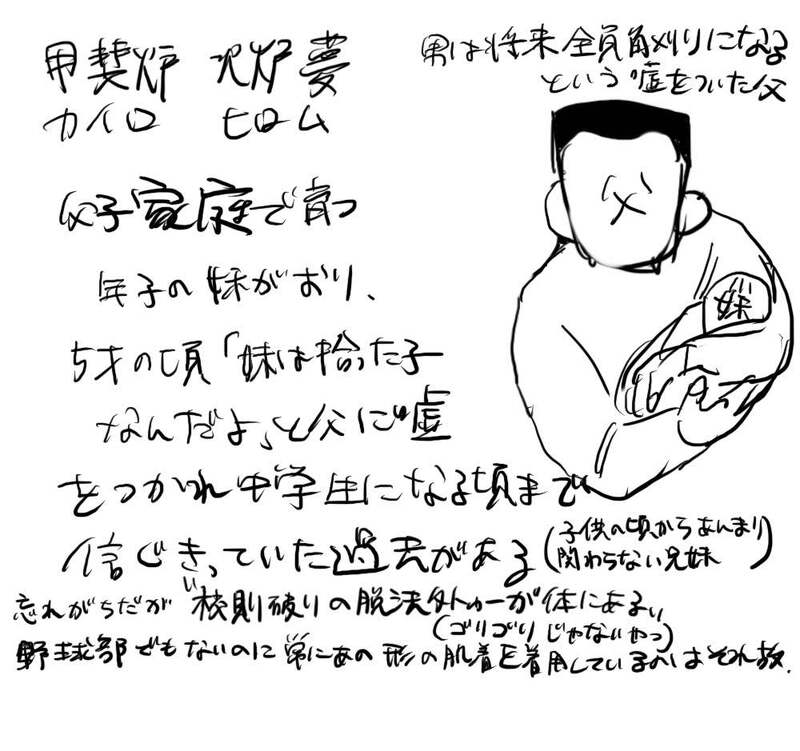 甲斐炉 火炉夢
カイロ ヒロム
男は将来全員角刈りになる
という嘘をついた父
父
妹
父子家庭で育つ
年子の妹がおり、
5才の頃「妹は拾った子
なんだよ」と父に嘘
をつかれ中学生になる頃まで
信じきっていた過去がある
(子供の頃からあんまり
関わらない兄妹)
忘れがちだが校則破りの脱法タトゥーが体にある、
(ゴリゴリじゃないやつ)
野球部でもないのに常にあの形の肌着を着用しているのはそれ故.